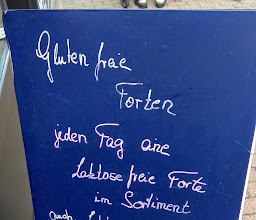 Gluten freie
Torten
jeden Tag eine
Laktose freie Torte
im Sortiment
auch